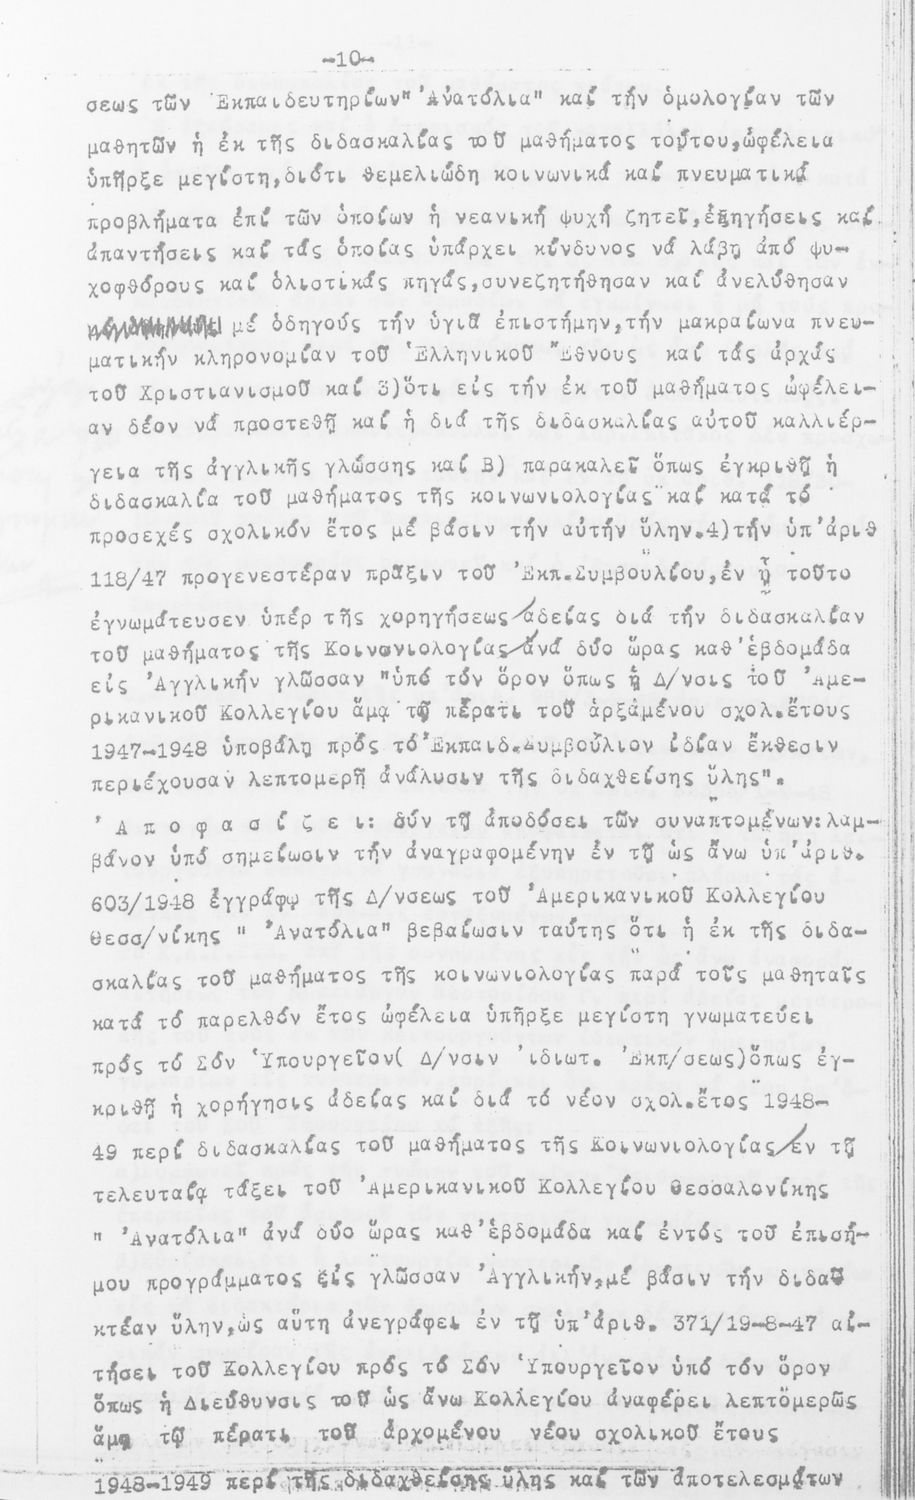 -10-
σεως τῶν Ἐκπαιδευτηρίων" Ἀνατόλια" καί τήν ὁμολογίαν τῶν
μαθητῶν ἡ ἐκ τῆς διδασκαλίας τοῦ μαθήματος τούτου,ὠφέλεια
ὑπῆρξε μεγίστη,διότι θεμελιώδη κοινωνικά καί πνευματικά
προβλήματα ἐπί τῶν ὁποίων ἡ νεανική ψυχή ζητεῖ,ἐξηγήσεις καί
ἀπαντήσεις καί τάς ὁποίας ὑπάρχει κίνδυνος νά λάβῃ ἀπό ψυ-
χοφθόρους καί ὁλιστικάς πηγάς,συνεζητήθησαν καί ἀνελύθησαν
μέ ὁδηγούς τήν ὑγιᾶ ἐπιστήμην,τήν μακραίωνα πνευ-
ματικήν κληρονομίαν τοῦ Ἑλληνικοῦ Ἔθνους καί τάς ἀρχάς
τοῦ Χριστιανισμοῦ καί 3)ὅτι εἰς τήν ἐκ τοῦ μαθήματος ὠφέλει-
αν δέον νά προστεθῇ καί ἡ διά τῆς διδασκαλίας αὐτοῦ καλλιέρ-
γεια τῆς ἀγγλικῆς γλώσσης καί Β) παρακαλεῖ ὅπως ἐγκριθῇ ἡ
διδασκαλία τοῦ μαθήματος τῆς κοινωνιολογίας καί κατά τό
προσεχές σχολικόν ἔτος μέ βάσιν τήν αὐτήν ὕλην.4)τήν ὑπ'ἀριθ
118/47 προγενεστέραν πρᾶξιν τοῦ Ἐκπ.Συμβουλίου,ἐν ᾗ τοῦτο
ἐγνωμάτευσεν ὑπέρ τῆς χορηγήσεως/ἀδείας διά τήν διδασκαλίαν
τοῦ μαθήματος τῆς Κοινωνιολογίας/ἀνά δύο ὥρας καθ'ἑβδομάδα
εἰς Ἀγγλικήν γλῶσσαν "ὑπό τόν ὅρον ὅπως ἡ Δ/νσις τοῦ Ἀμε-
ρικανικοῦ Κολλεγίου ἅμα τῷ πέρατι τοῦ ἀρξαμένου σχολ.ἔτους
1947-1948 ὑποβάλῃ πρός τό Ἐκπαιδ.Συμβούλιον ἰδίαν ἔκθεσιν
περιέχουσαν λεπτομερῆ ἀνάλυσιν τῆς διδαχθείσης ὕλης".
Ἀ π ο φ α σ ί ζ ε ι: Σύν τῇ ἀποδόσει τῶν συναπτομένων:λαμ-
βάνον ὑπό σημείωσιν τήν ἀναγραφομένην ἐν τῇ ὡς ἄνω ὑπ'ἀριθ.
603/1948 ἐγγράφῳ τῆς Δ/νσεως τοῦ Ἀμερικανικοῦ Κολλεγίου
Θεσσ/νίκης " Ἀνατόλια" βεβαίωσιν ταύτης ὅτι ἡ ἐκ τῆς διδα-
σκαλίας τοῦ μαθήματος τῆς κοινωνιολογίας παρά τοῖς μαθηταῖς
κατά τό παρελθόν ἔτος ὠφέλεια ὑπῆρξε μεγίστη γνωματεύει
πρός τό Σόν Ὑπουργεῖον( Δ/νσιν ἰδιωτ. Ἐκπ/σεως)ὅπως ἐγ-
κριθῇ ἡ χορήγησις ἀδείας καί διά τό νέον σχολ.ἔτος 1948-
49 περί διδασκαλίας τοῦ μαθήματος τῆς Κοινωνιολογίας/ἐν τῇ
τελευταίᾳ τάξει τοῦ Ἀμερικανικοῦ Κολλεγίου Θεσσαλονίκης
" Ἀνατόλια" ἀνά δύο ὥρας καθ'ἑβδομάδα καί ἐντός τοῦ ἐπισή-
μου προγράμματος εἰς γλῶσσαν Ἀγγλικήν,μέ βάσιν τήν διδα
κτέαν ὕλην,ὡς αὕτη ἀνεγράφει ἐν τῇ ὑπ'ἀριθ. 371/19-8-47 αἰ-
τήσει τοῦ Κολλεγίου πρός τό Σόν Ὑπουργεῖον ὑπό τόν ὅρον
ὅπως ἡ Διεύθυνσις τοῦ ὡς ἄνω Κολλεγίου ἀναφέρει λεπτομερῶς
ἅμα τῷ πέρατι τοῦ ἀρχομένου νέου σχολικοῦ ἔτους
1948-1949 περί τῆς διδαχθείσης ὕλης καί τῶν ἀποτελεσμάτων